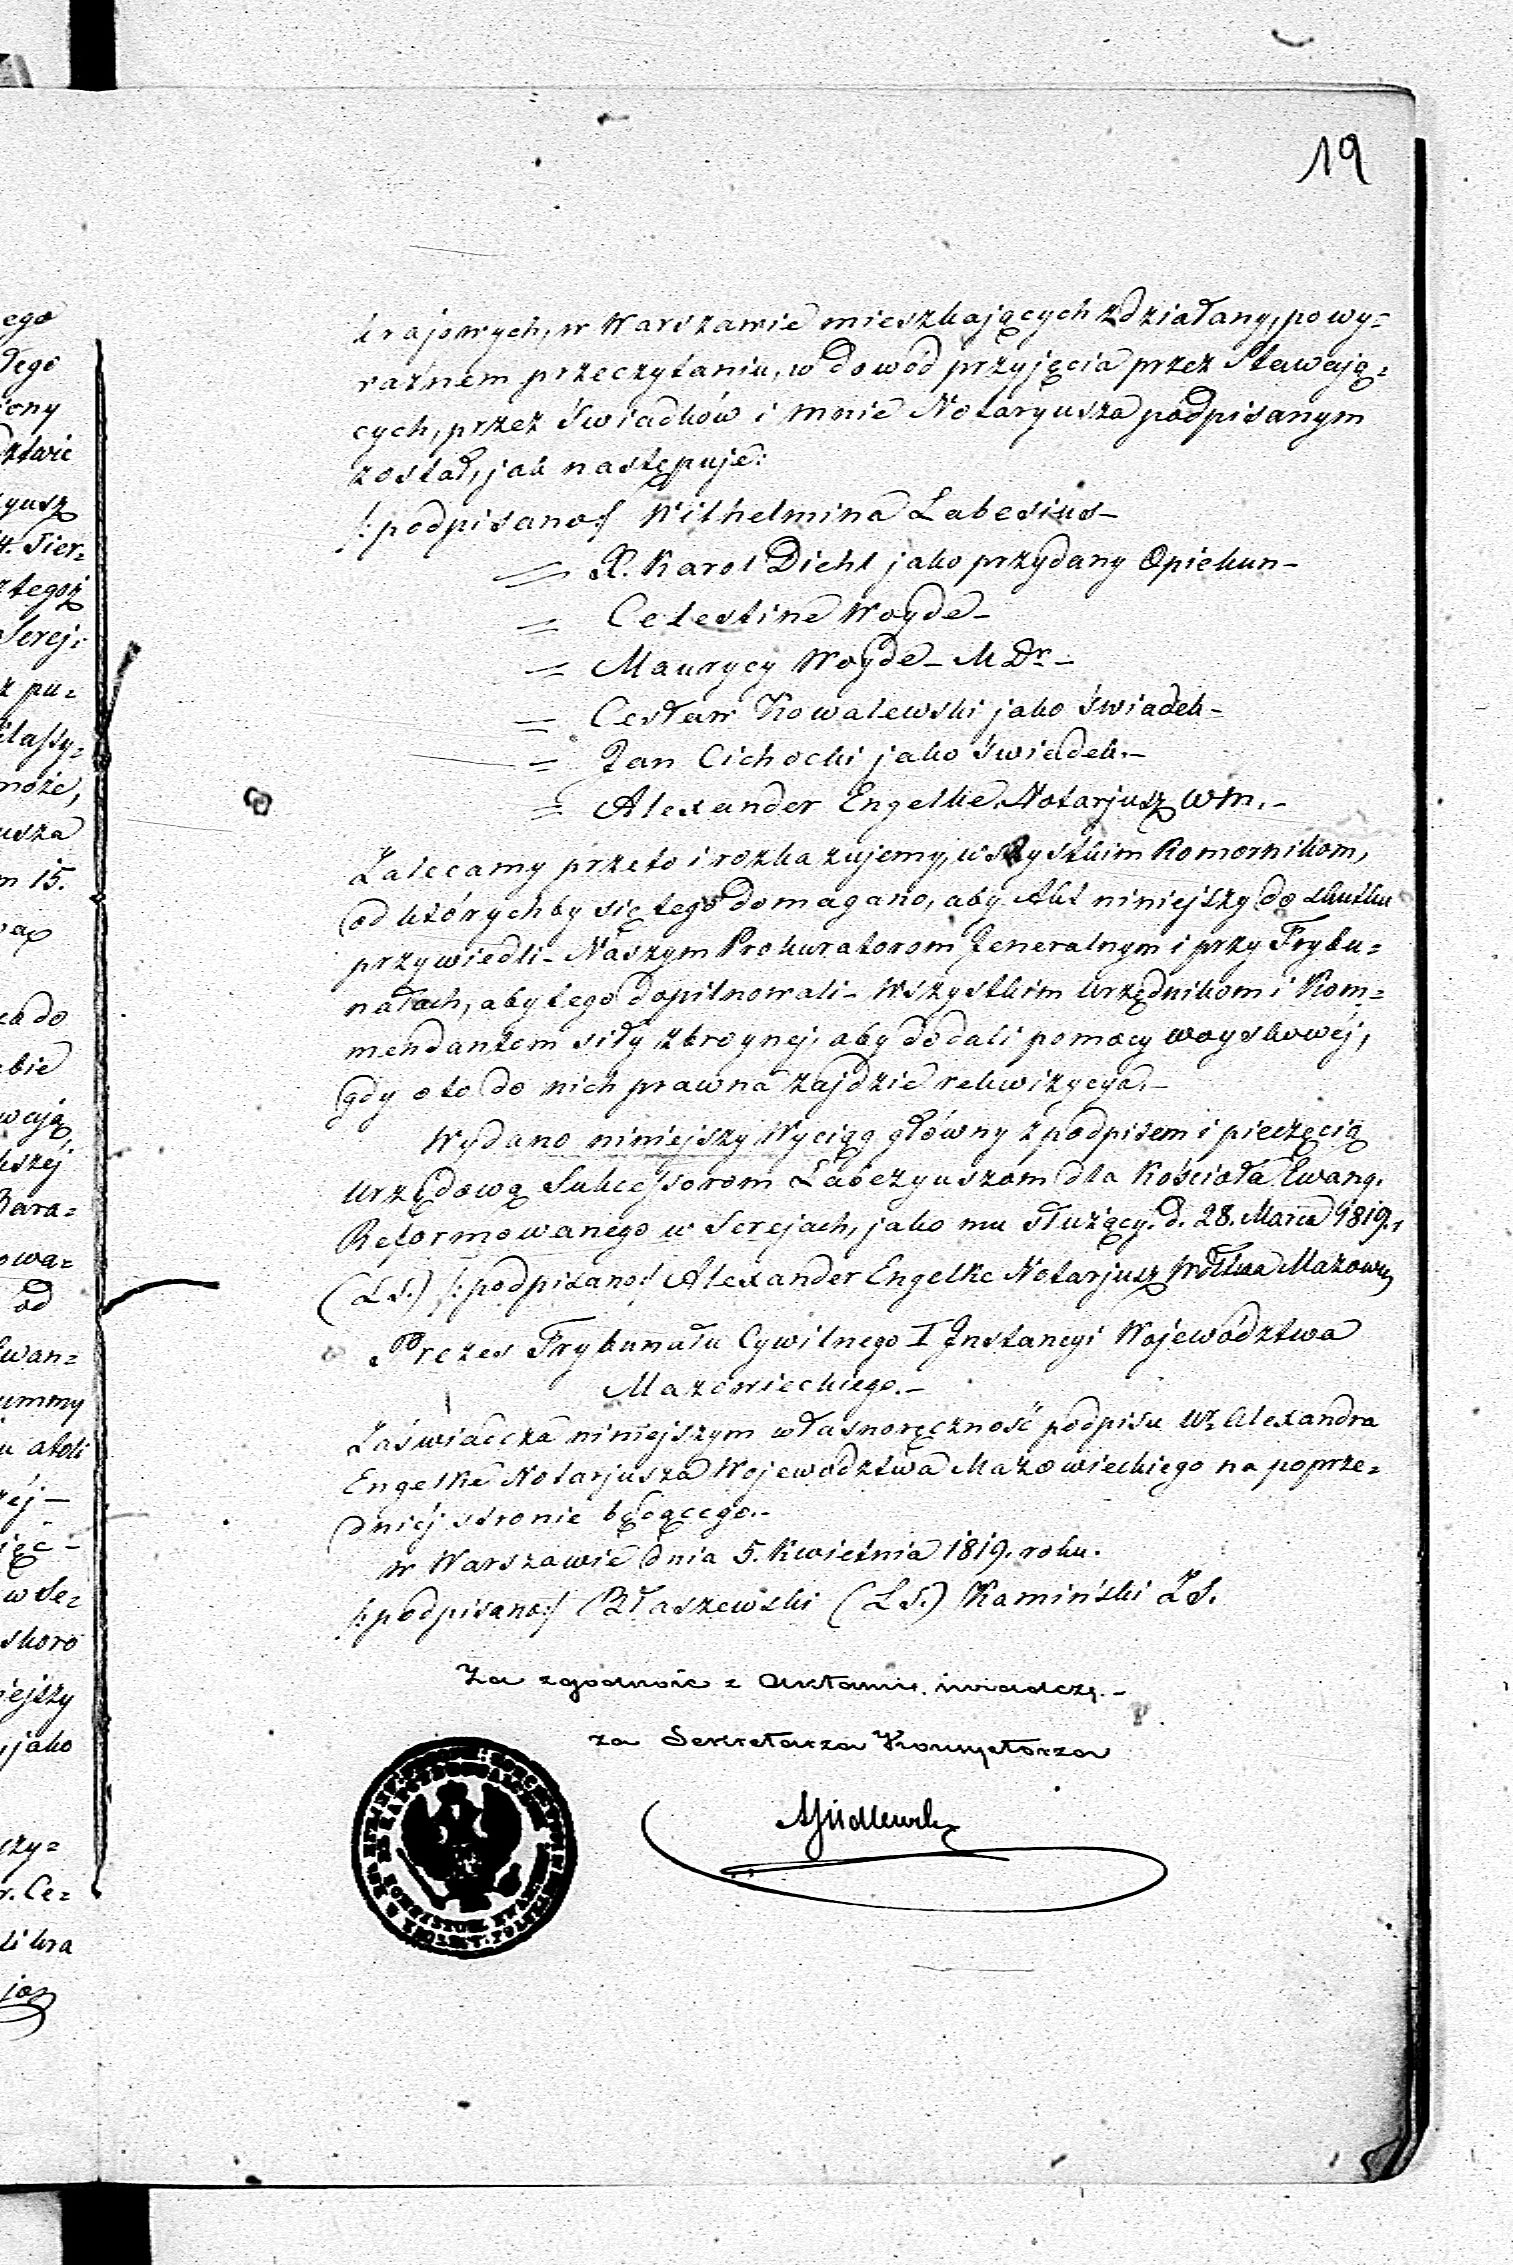 19
krajowych, w Warszawie mieszkających zdziałany, po wy=
raźnem przeczytaniu, w dowód przyjęcia przez Stawają=
cych, przez Świadków i mnie Notaryusza podpisanym
został, jak następuje:
/:podpisano:/ Wilhelmina Labesius –
= X. Karol Diehl jako przydany Opiekun –
= Celestine Woyde –
= Maurycy Woyde – M Dr. –
= Cesław Kowalewski jako świadek –
= Jan Cichocki jako świadek. –
= Alexander Engelke, Notarjusz W M. –
Zalecamy przeto i rozkazujemy, wszystkim Komornikom,
od którychby się tego domagano, aby Akt niniejszy do skutku
przywiedli – Naszym Prokuratorom Jeneralnym i przy Trybu=
nałach, aby tego dopilnowali – Wszystkim urzędnikom i Kom=
mendantom siły zbroynej, aby dodali pomocy woyskowéj,
gdy o to do nich prawna zajdzie rekwizycya. –
Wydano niniejszy Wyciąg główny z podpisem i pieczęcią
urzędową Sukcessorom Labezyuszom dla Kościoła Ewang.
Reformowanego w Serejach, jako mu służący. d. 28. Marca 1819.,
(L S.) /:podpisano:/ Alexander Engelke Notarjusz Mazow
Prezes Trybunału Cywilnego I Instancyi Województwa
Mazowieckiego. –
Zaświadcza niniejszym własnoręczność podpisu W. Alexandra
Engelke Notarjusza Województwa Mazowieckiego na poprze=
dniéj stronie będącego. –
w Warszawie dnia 5. Kwietnia 1819. roku.
/:podpisano:/ Błaszewski (L S.) Kamiński Z S.
Za zgodność z Aktami świadczę. –
za Sekretarza Konsystorza